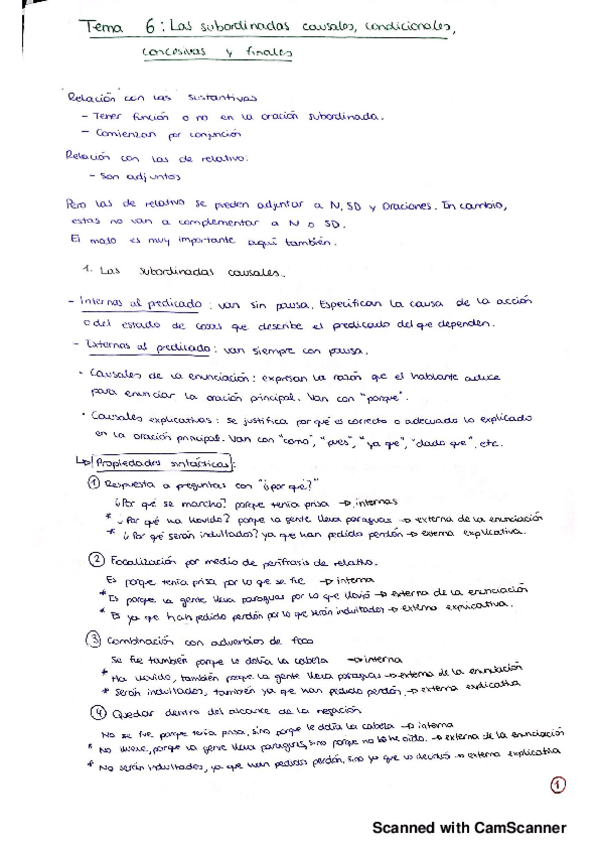 Tema 6: Las subordinadas causales, condicionales,
concesivas y finales
Relación con las sustantivas
- Tener función o no en la oración subordinada.
- Comienzan por conjunción
Relación con las de relativo:
- Son adjuntos
Pero las de relativo se pueden adjuntar a N, SD y Oraciones. En cambio,
estas no van a complementar a N o SD.
El modo es muy importante aquí también.
1. Las subordinadas causales.
- Internas al predicado: van sin pausa. Especifican la causa de la acción
o del estado de cosas que describe el predicado del que dependen.
- Externas al predicado: van siempre con pausa.
· Causales de la enunciación: expresan la razón que el hablante aduce
para enunciar la oración principal. Van con "porque".
· Causales explicativas: se justifica por qué es correcto o adecuado lo explicado
en la oración principal. Van con "como", "pues", "ya que", "dado que", etc.
↳ Propiedades sintácticas:
① Respuesta a preguntas con "¿por qué?"
¿Por qué se marchó? porque tenía prisa → internas
* ¿Por qué ha llovido? porque la gente lleva paraguas → externa de la enunciación
* ¿Por qué serán indultados? ya que han pedido perdón → externa explicativa.
② Focalización por medio de perífrasis de relativo.
Es porque tenía prisa por lo que se fue → interna
* Es porque la gente lleva paraguas por lo que llovió → externa de la enunciación
* Es ya que han pedido perdón por lo que serán indultados → externa explicativa.
③ Combinación con adverbios de foco
Se fue también porque le dolía la cabeza → interna
* Ha llovido, también porque la gente lleva paraguas → externa de la enunciación
* Serán indultados, también ya que han pedido perdón → externa explicativa
④ Quedar dentro del alcance de la negación
No se fue porque tenía prisa, sino porque le dolía la cabeza → interna
* No llueve, porque la gente lleva paraguas, sino porque no lo he oído. → externa de la enunciación
* No serán indultados, ya que han pedido perdón, sino ya que lo → externa explicativa
①
Scanned with CamScanner